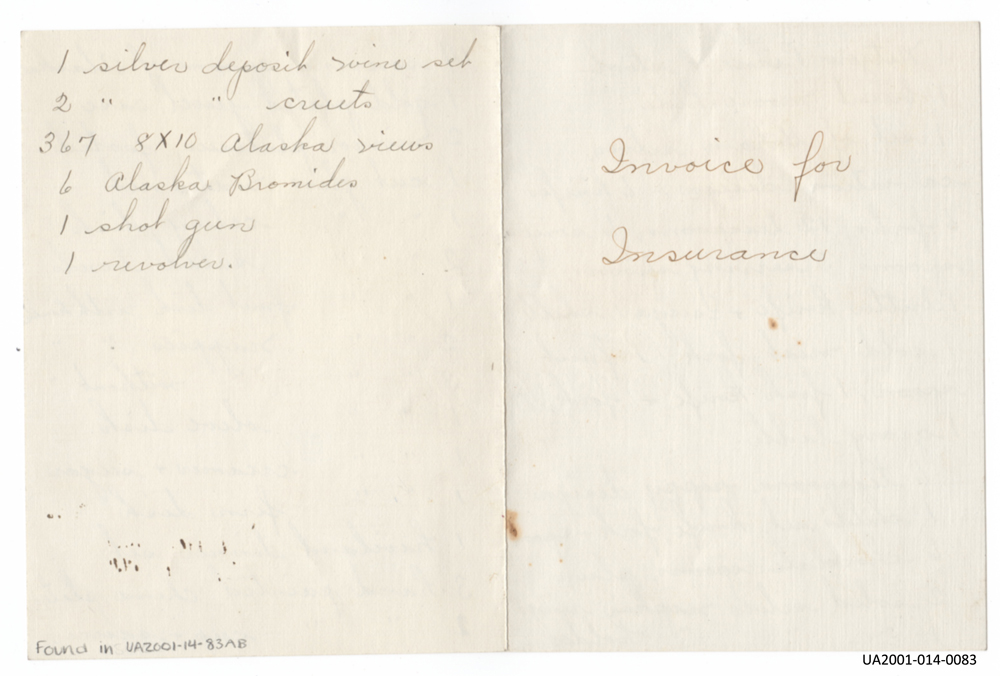 1 silver deposit wine set
2 " " cruets
367 8X10 Alaska views
6 Alaska Bromides
1 shot gun
1 revolver.
Found in UA2001-14-83AB
Invoice for
Insurance
UA2001-014-0083